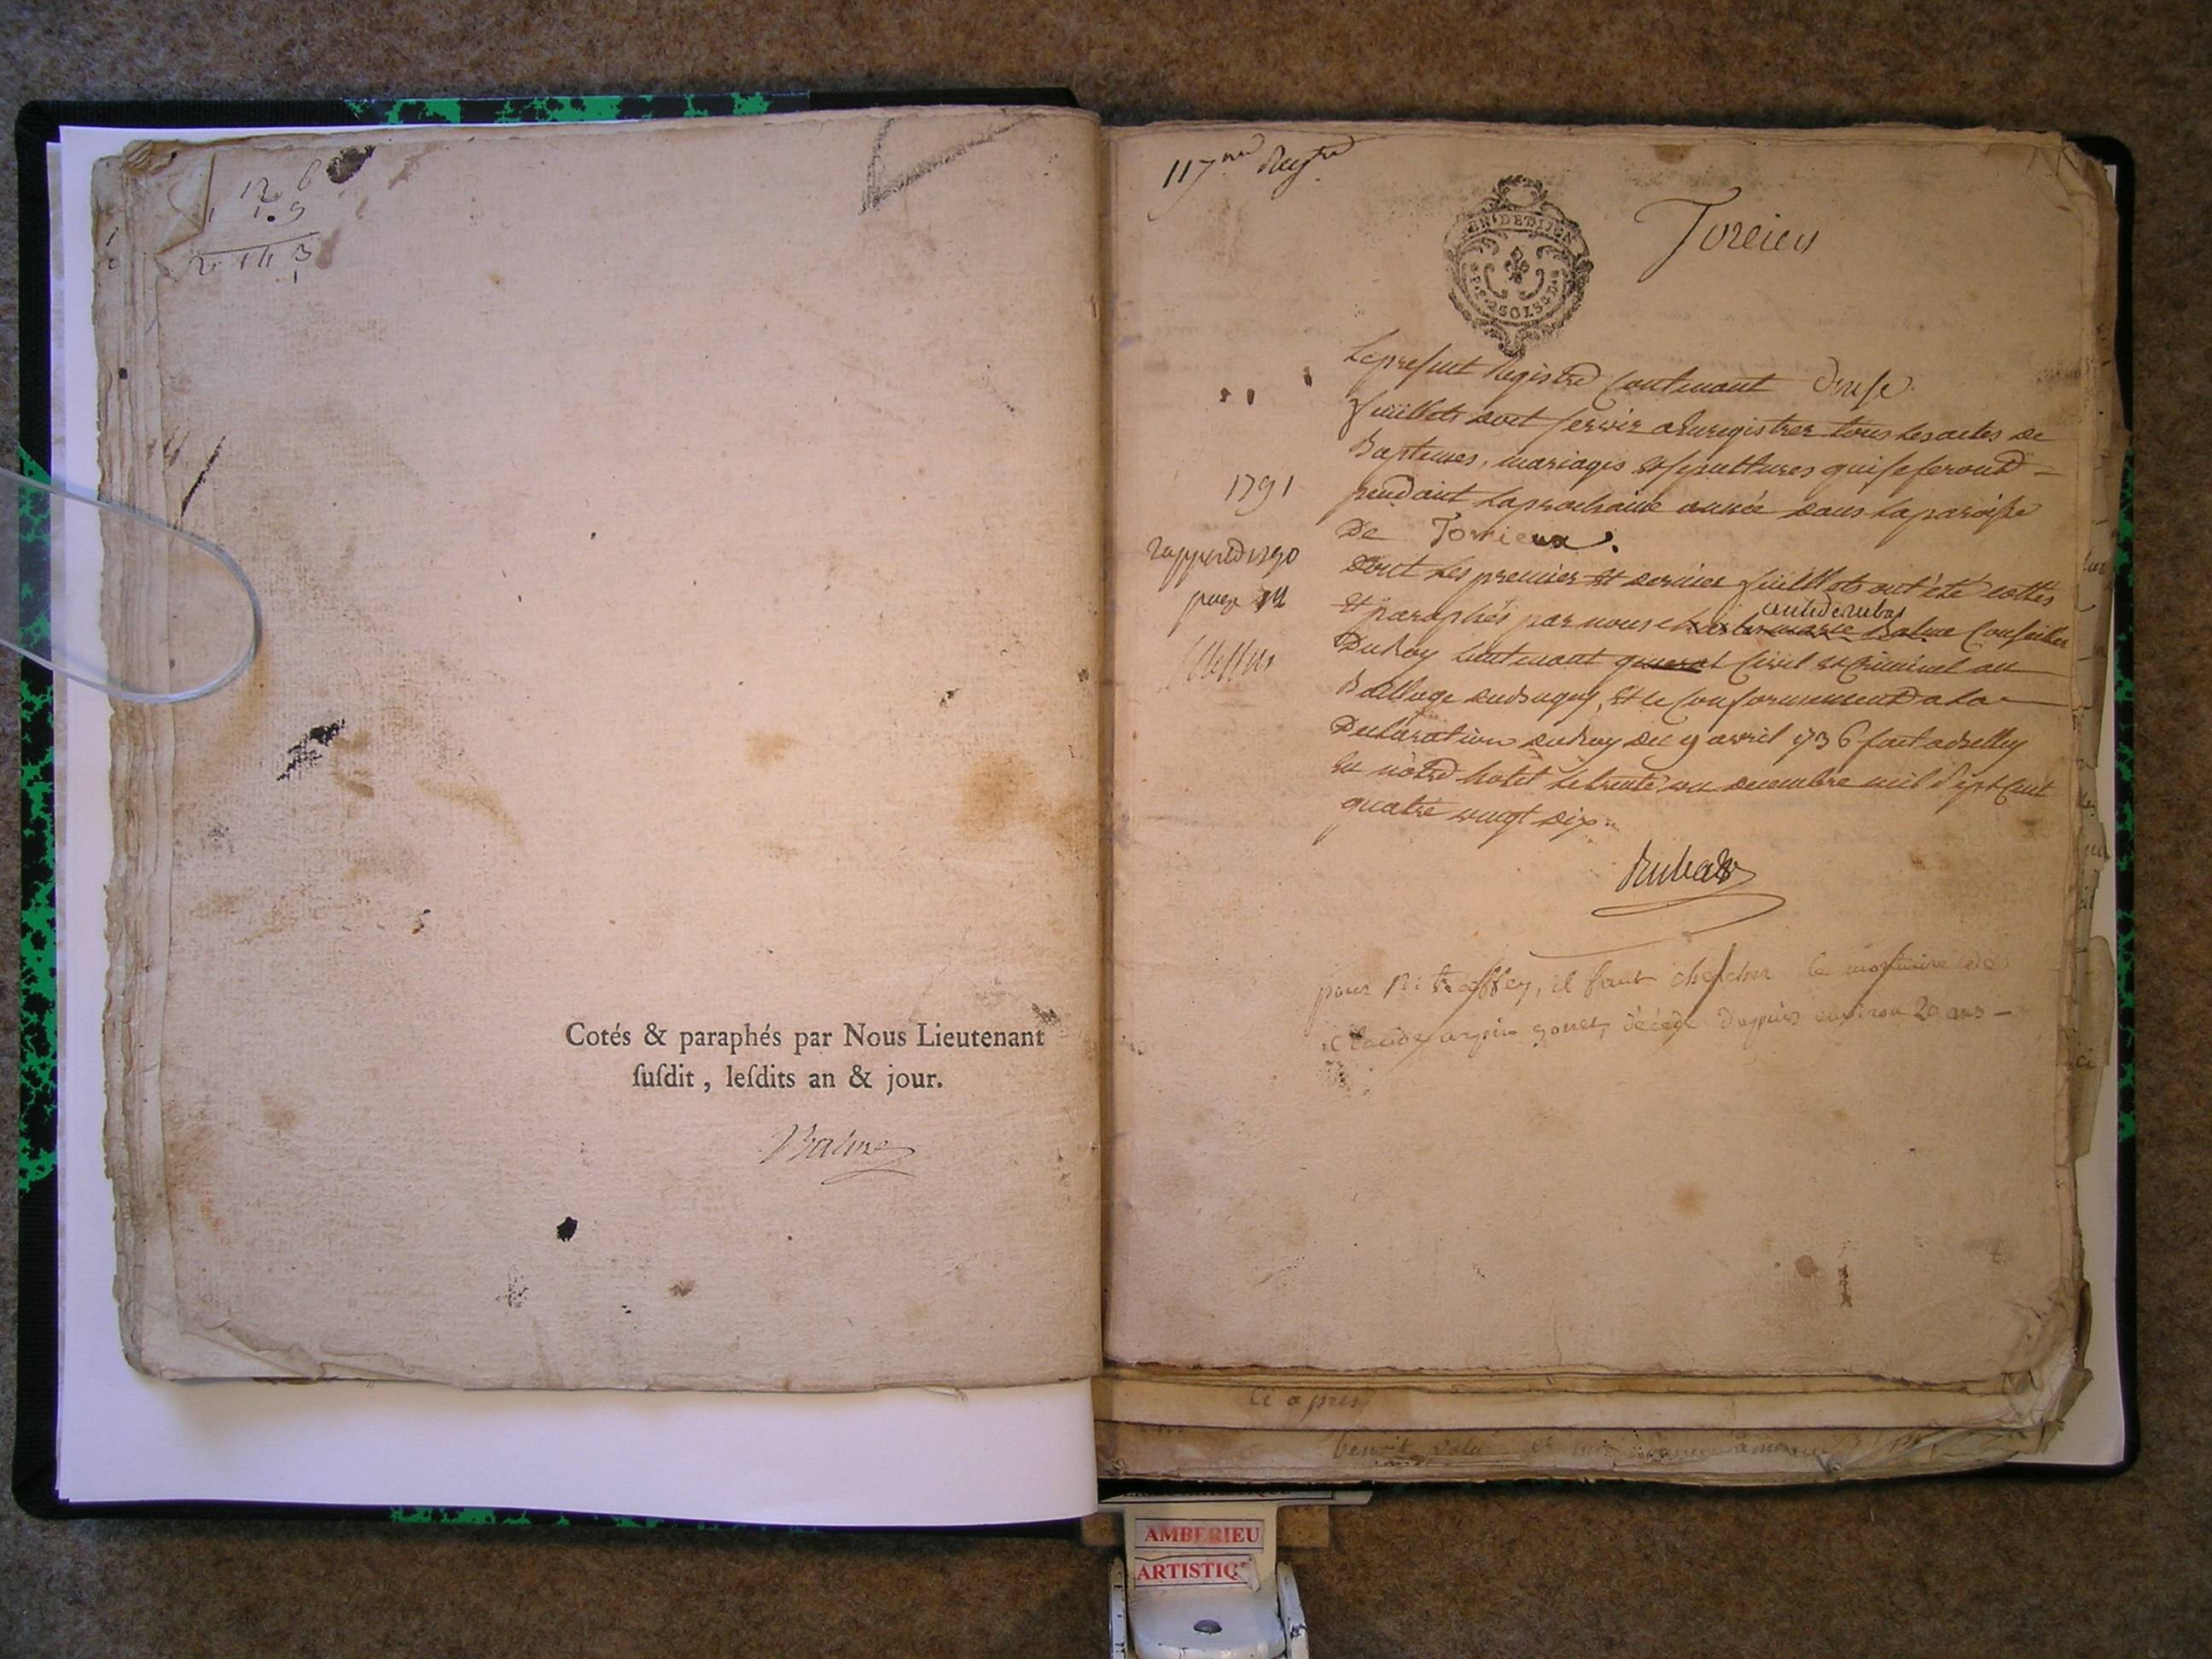 12 6
1. 9
2 14 3
1
Cotés & paraphés par Nous Lieutenant
ſuſdit, leſdits an & jour.
Balme
117me Regtre
GEN DE DIJON
2 SOLS
Torcieu
Le present Registre contenant onse
feuillets doit servir a Enregistrer tous les actes de
Baptemes, mariages et sepultures qui se feront
pendant la prochaine année dans la paroisse
De Torcieux.
dont les premier et dernier feuillets ont été cottés
et paraphés par nous charles marie Balme Conseiller
anthderubat
Du Roy lieutenant general Civil et Criminel au
Bailliage du Bugey, et ce conformement a la
Declaration du Roy du 9 avril 1736 fait a Belley
en notre hotel le trente un decembre mil sept cent
quatre vingt dix.
Rubat
1791
1790
page
pour il faut chercher le mortuaire de
Claude décédé depuis environ 20 ans
ci apres
benoit
AMBERIEU
ARTISTIQ